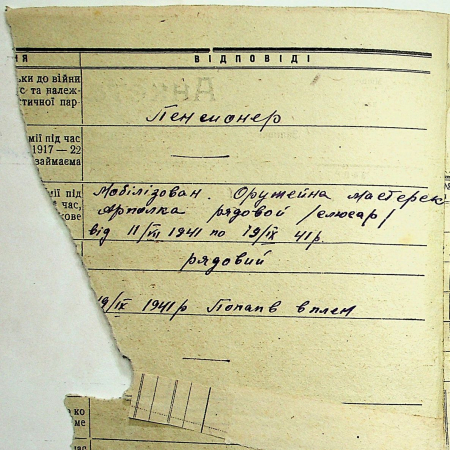 ня
ВІДПОВІДІ
ьки до війни
с та належ-
стичної пар-
Пенсионер
мії під час
1917—22
займаєма
мії під
час,
кове
Мобілізован. Оружейна мастерск
Артполка рядовой /слюсар/
від 11/VII 1941 по 19/IX 41 р.
рядовий
19/IX 1941 р Попав в плен
ко
ме
час